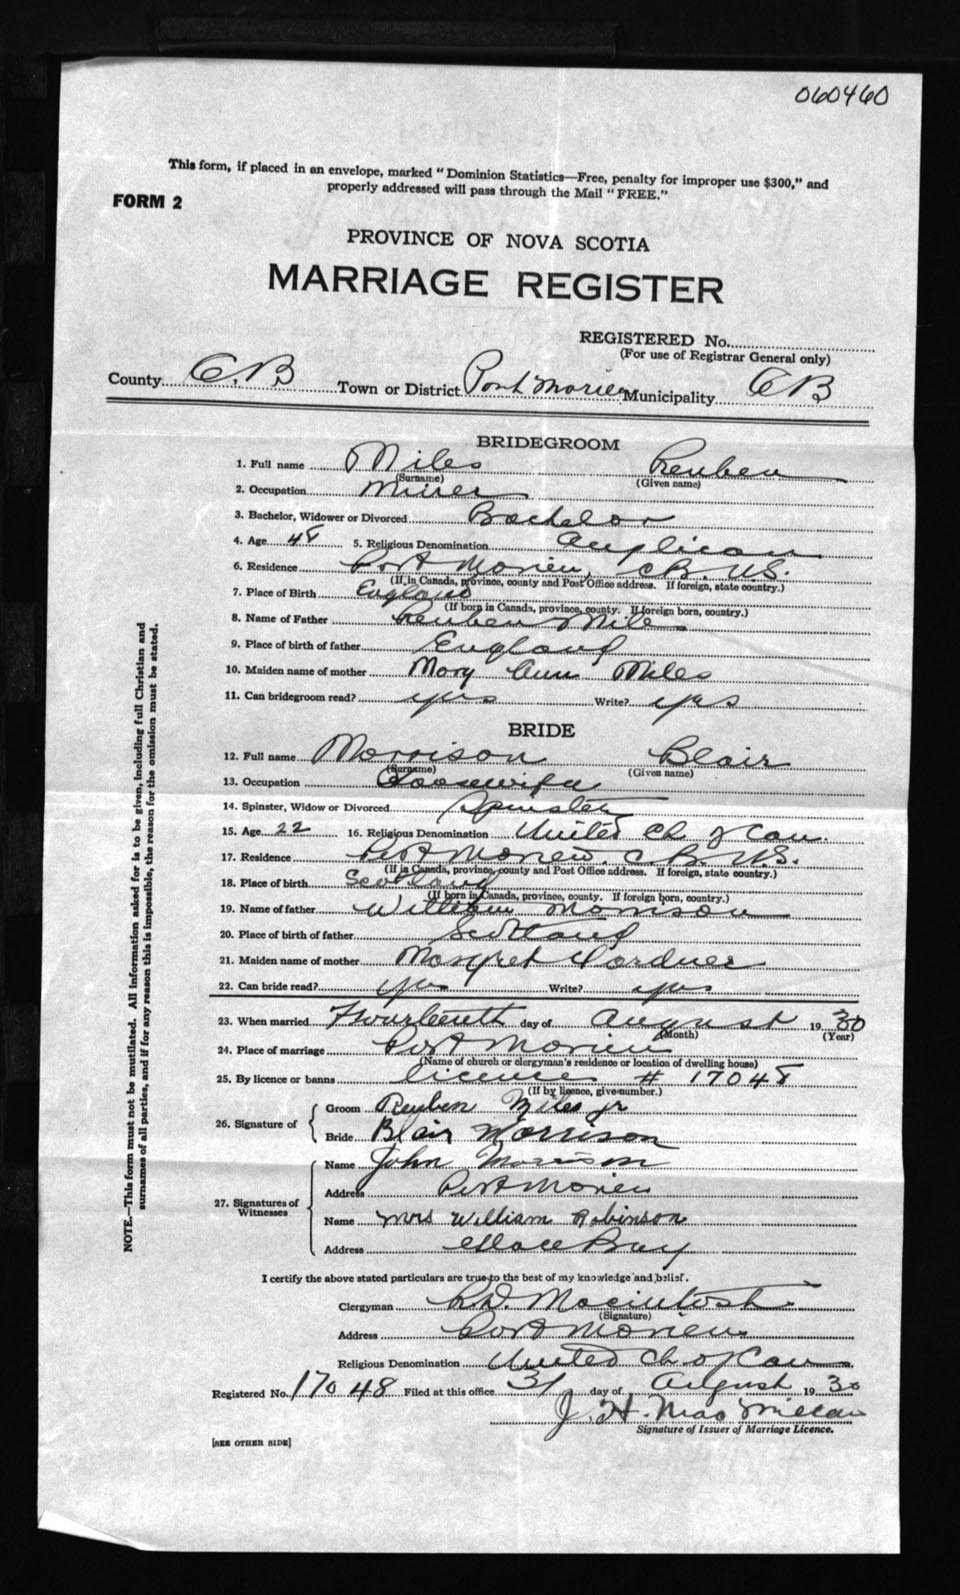 060460
This form, if placed in an envelope, marked "Dominion Statistics—Free, penalty for improper use $300," and
properly addressed will pass through the Mail "FREE."
FORM 2
PROVINCE OF NOVA SCOTIA
MARRIAGE REGISTER
REGISTERED No.
(For use of Registrar General only)
County C.B Town or District Port Morien Municipality CB
BRIDEGROOM
1. Full name Miles Reuben
(Surname) (Given name)
2. Occupation Miner
3. Bachelor, Widower or Divorced Bachelor
4. Age 48 5. Religious Denomination Anglican
6. Residence Port Morien, C.B., N.S.
(If in Canada, province, county and Post Office address. If foreign, state country.)
7. Place of Birth England
(If born in Canada, province, county. If foreign born, country.)
8. Name of Father Reuben Mile
9. Place of birth of father England
10. Maiden name of mother Mary Ann Miles
11. Can bridegroom read? yes Write? yes
BRIDE
12. Full name Morrison Blair
(Surname) (Given name)
13. Occupation
14. Spinster, Widow or Divorced Spinster
15. Age 22 16. Religious Denomination United Ch of Can.
17. Residence Port Morien, C.B. N.S.
(If in Canada, province, county and Post Office address. If foreign, state country.)
18. Place of birth Scotland
(If born in Canada, province, county. If foreign born, country.)
19. Name of father William Morrison
20. Place of birth of father Scotland
21. Maiden name of mother Margret
22. Can bride read? yes Write? yes
23. When married Fourteenth day of August 1930
(Month) (Year)
24. Place of marriage Port Morien
(Name of church or clergyman's residence or location of dwelling house)
25. By licence or banns licence # 17048
(If by licence, give number.)
26. Signature of
Groom Reuben Miles jr
Bride Blair Morrison
27. Signatures of Witnesses
Name John Morrison
Address Port Morien
Name Mrs William Robinson
Address Glace Bay
I certify the above stated particulars are true to the best of my knowledge and belief.
Clergyman Macintosh
(Signature)
Address Port Morien
Religious Denomination United Ch. of Can
Registered No. 17048 Filed at this office 31 day of August 1930
J. H. MacMillan
Signature of Issuer of Marriage Licence.
[SEE OTHER SIDE]
NOTE.—This form must not be mutilated. All information asked for is to be given, including full Christian and
surnames of all parties, and if for any reason this is impossible, the reason for the omission must be stated.